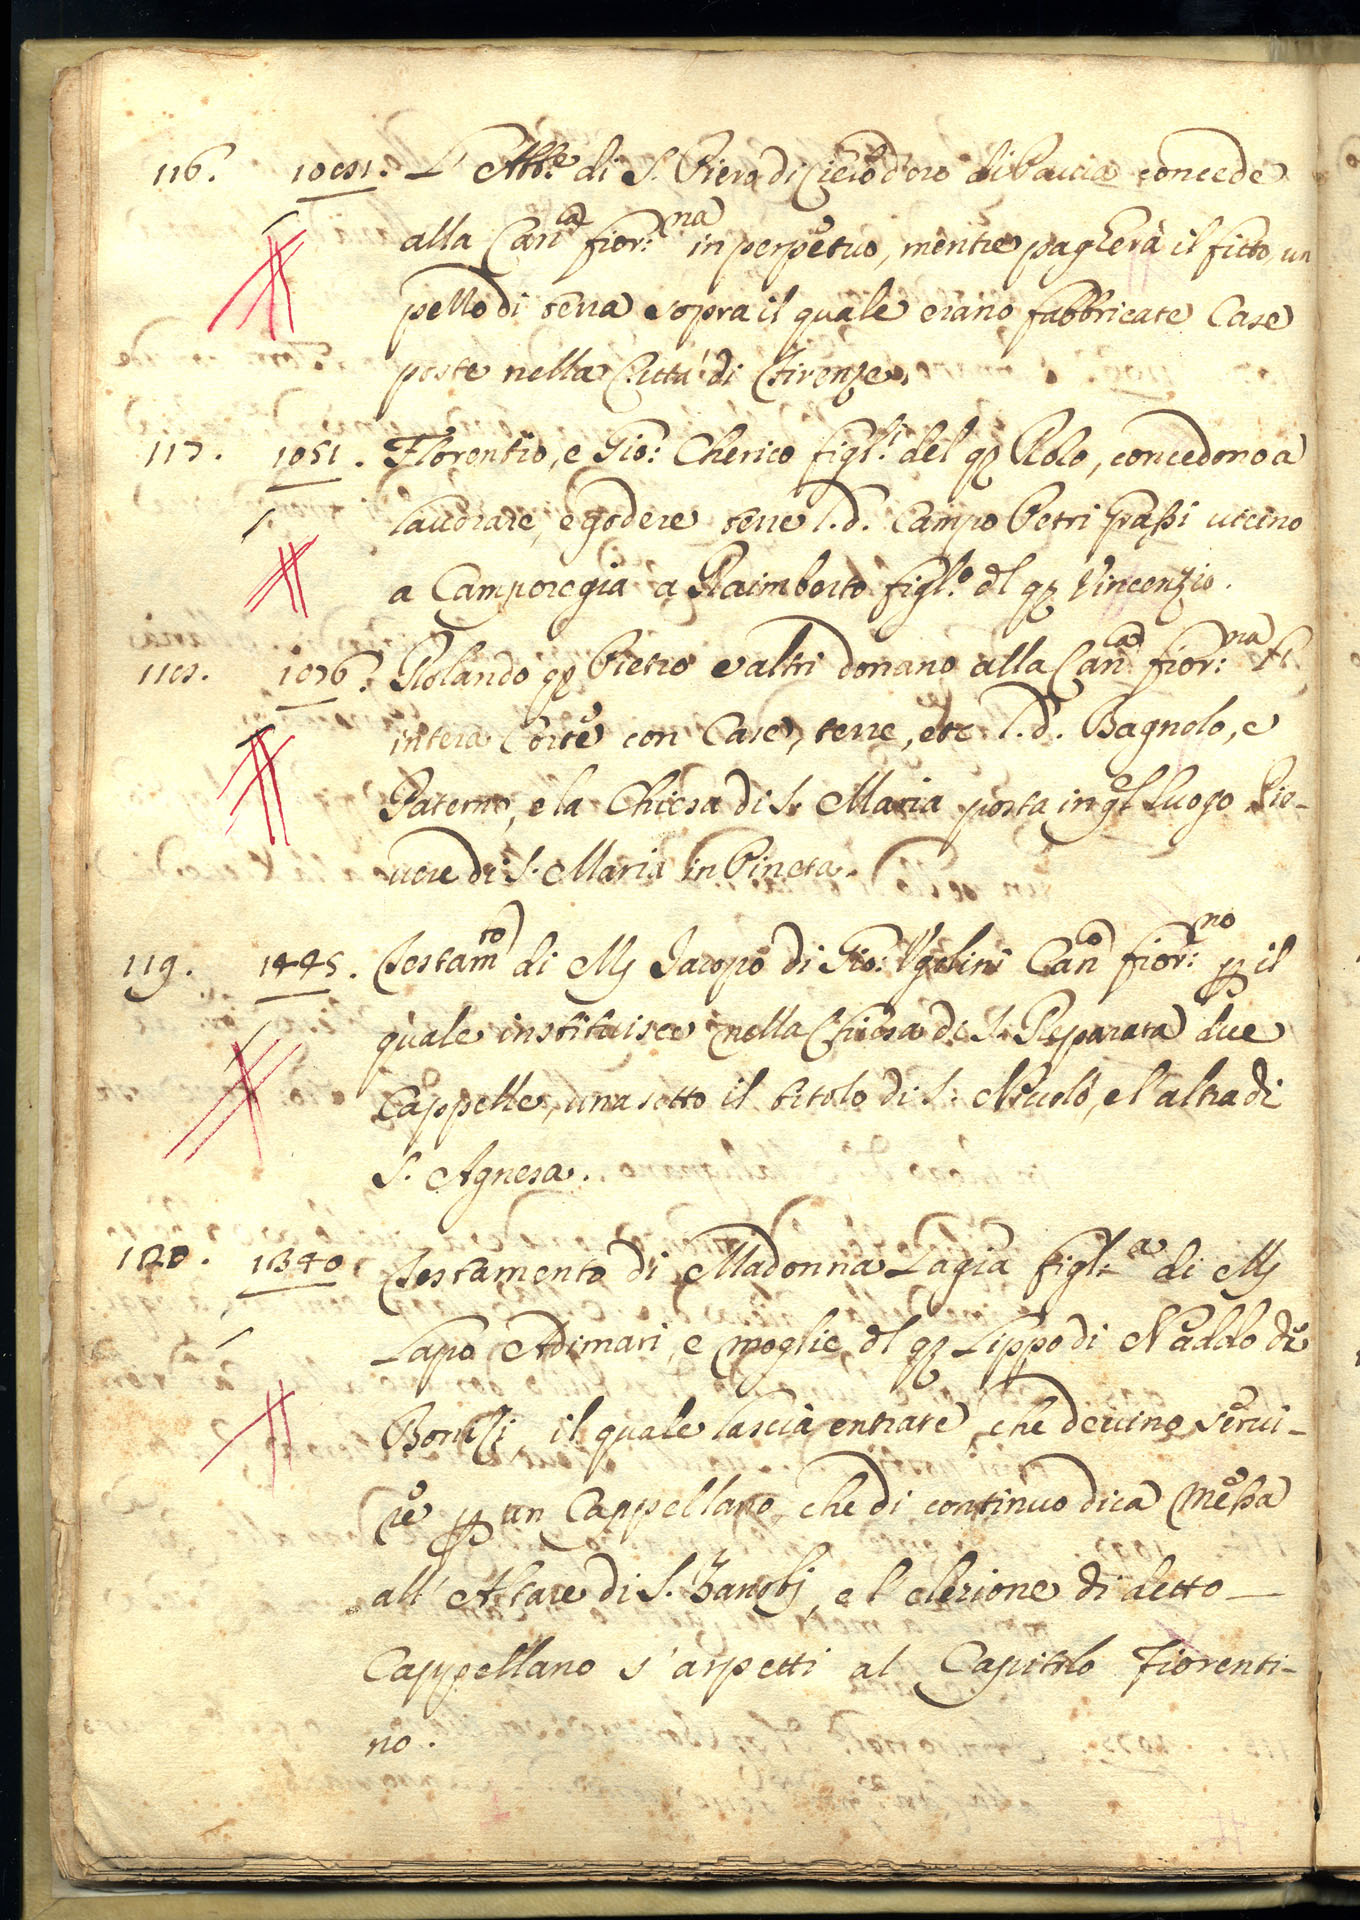 116. 1081. L'Abb.e di S. Piero di Cielo d'oro di Pavia concede
alla Can.ca fior.na in perpetuo, mentre pagherà il fitto, un
pello di terra sopra il quale erano fabbricate Case
poste nella Città di Firenze.
117. 1051. Florentio, e Gio: Cherico figl.i del q. Rolo, concedono a
lavorare, e godere terre l.d. Campo Petri Graßi vicino
a Camporegia a Raimberto figl.o dl q. Vincenzio.
118. 1076. Rolando q. Pietro e altri donano alla Can.ca fior.na
intera Corte con Case, terre, etc l.d. Bagnolo, e
Paterno, e la Chiesa di S. Maria posta in ql luogo Pie-
vere di S. Maria in Pineta.
119. 1445. Testam.to di Ms Jacopo di Gio: Ugolini Can.o fior.no p il
quale instituisce nella Chiesa di S. Reparata due
Cappelle, una sotto il titolo di S. Niccolò, e l'altra di
S. Agnesa.
120. 1340. Testamento di Madonna Lagia figl.a di Ms
Lapo Adimari, e moglie dl q. Lippo di Naddo di
il quale lascia entrate, che devino servi-
re p un Cappellano, che di continuo dica Meßa
all'Altare di S. Zanobj, e l'elezione di detto
Cappellano s'aspetti al Capitolo Fiorenti-
no.